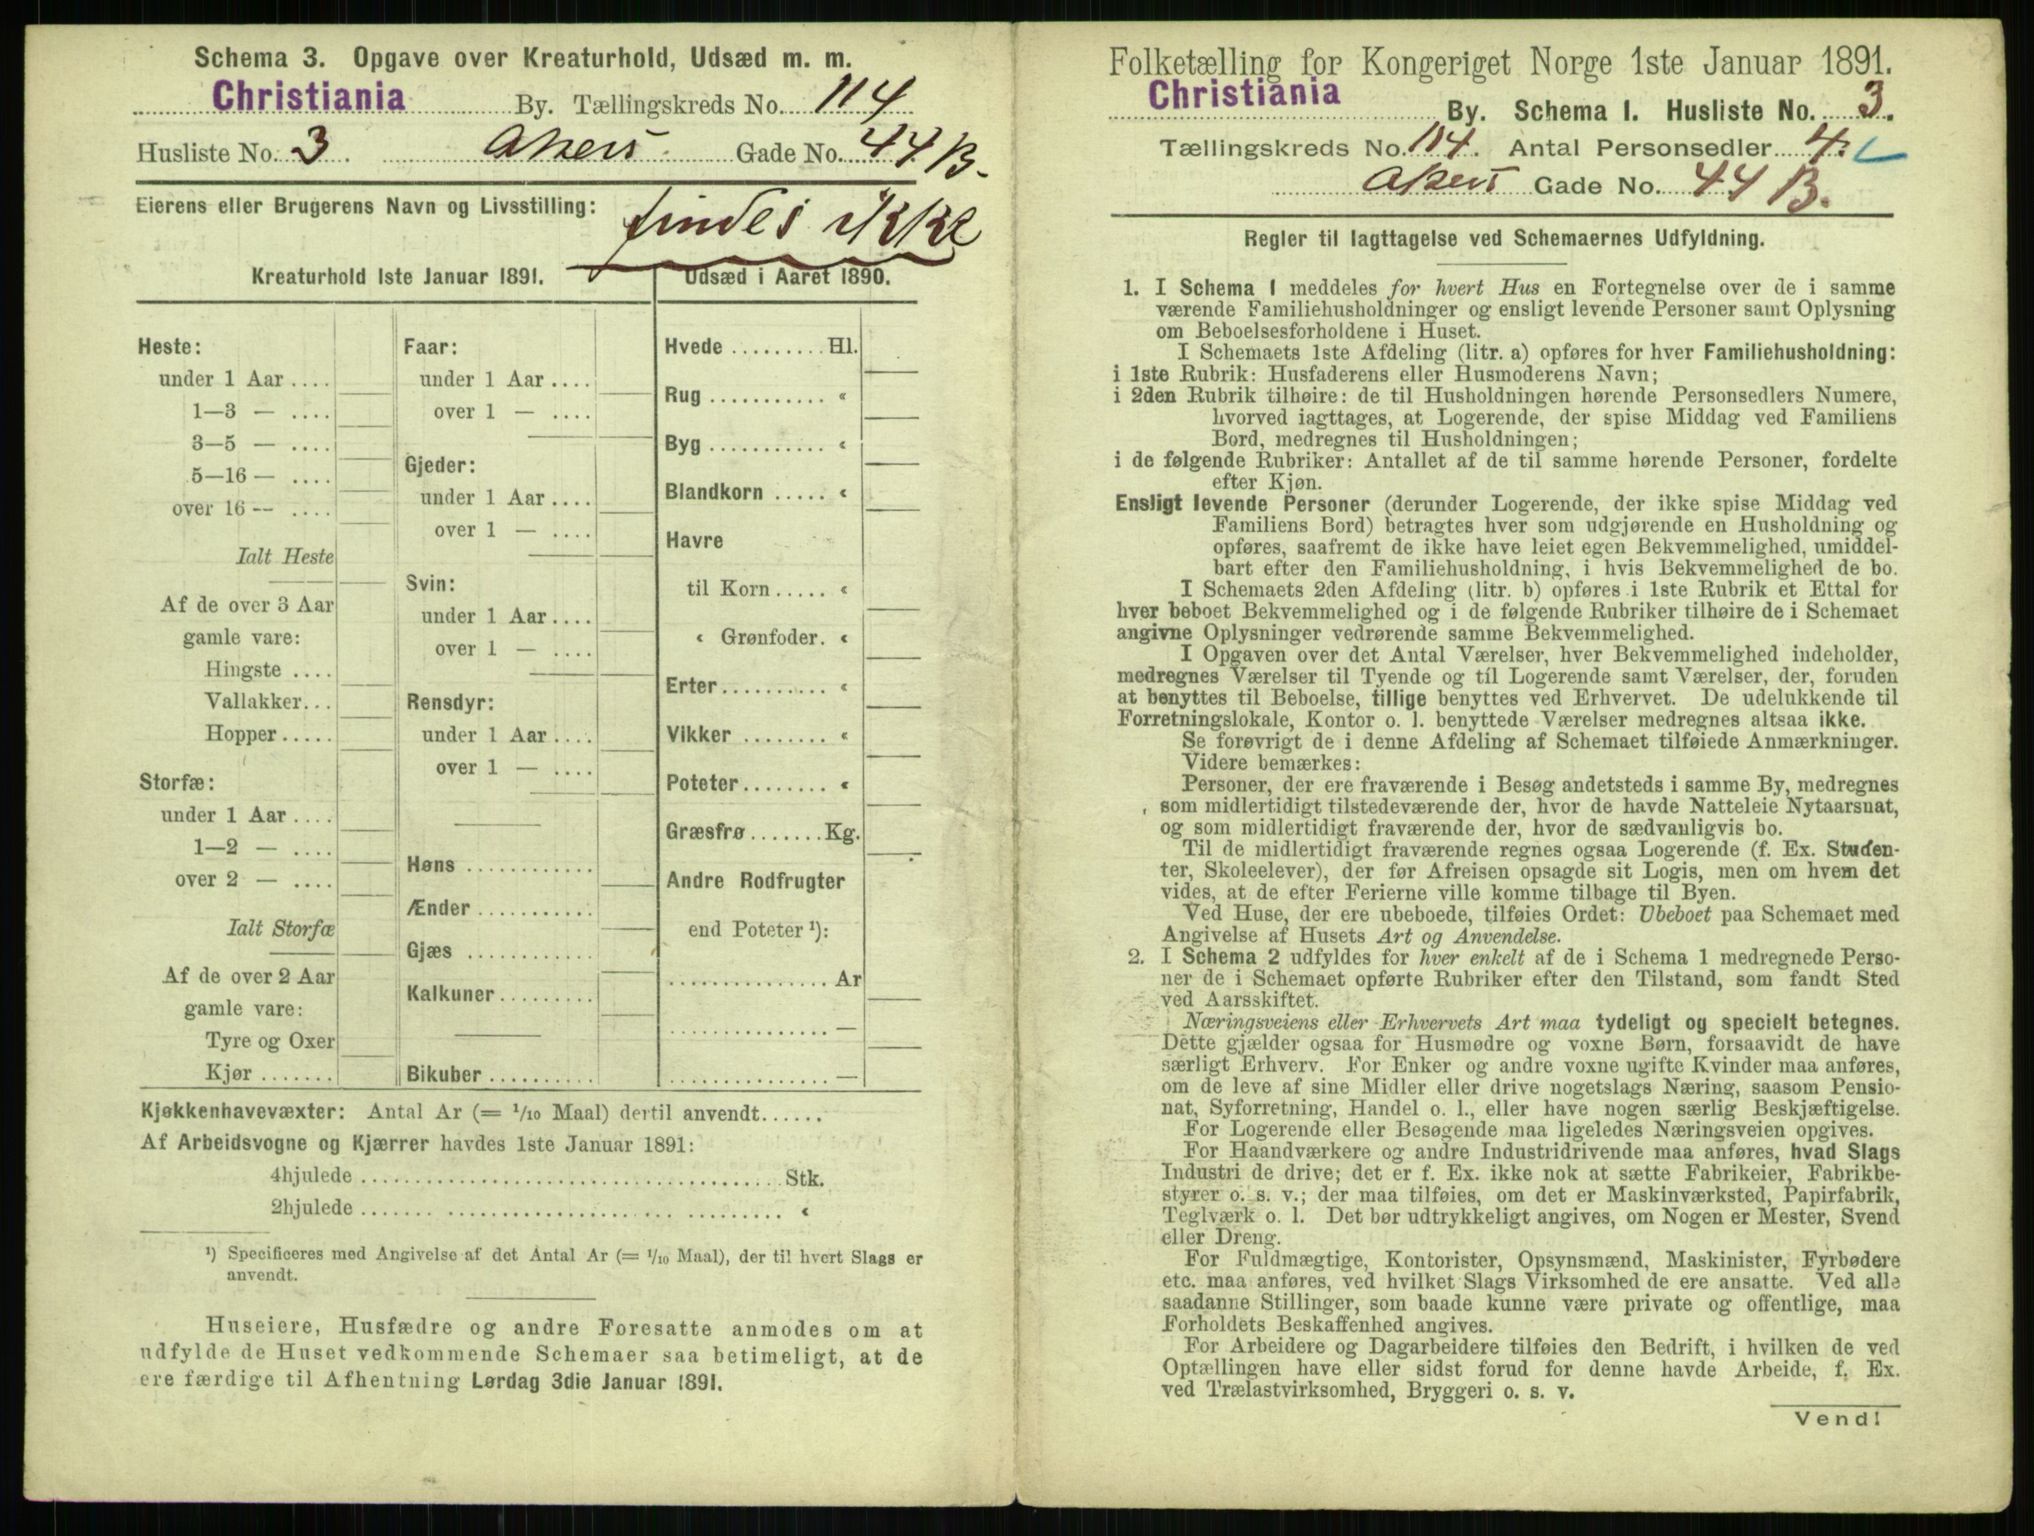 Schema 3. Opgave over Kreaturhold, Udsæd m. m.
Christiania By. Tællingskreds No. 114
Husliste No. 3. Akers Gade No. 44 B.
Eierens eller Brugerens Navn og Livsstilling: findes ikke
Kreaturhold 1ste Januar 1891.
Heste:
under 1 Aar ....
1—3 — ....
3—5 — ....
5—16 — ....
over 16 -- ....
Ialt Heste
Af de over 3 Aar
gamle vare:
Hingste ....
Vallakker...
Hopper .....
Storfæ:
under 1 Aar ....
1—2 — ....
over 2 — ....
Ialt Storfæ
Af de over 2 Aar
gamle vare:
Tyre og Oxer
Kjør .......
Faar:
under 1 Aar ....
over 1 — ....
Gjeder:
under 1 Aar ....
over 1 — ....
Svin:
under 1 Aar ....
over 1 — ....
Rensdyr:
under 1 Aar ....
over 1 — ....
Høns ...........
Ænder ...........
Gjæs ...........
Kalkuner.........
Bikuber ..........
Udsæd i Aaret 1890.
Hvede ......... Hl.
Rug ........... «
Byg ........... «
Blandkorn ..... «
Havre
til Korn ..... «
« Grønfoder. «
Erter .......... «
Vikker ........ «
Poteter ........ «
Græsfrø ....... Kg.
Andre Rodfrugter
end Poteter ¹):
............... Ar
............... —
............... —
Kjøkkenhavevæxter: Antal Ar (= 1/10 Maal) dertil anvendt......
Af Arbeidsvogne og Kjærrer havdes 1ste Januar 1891:
4hjulede ...................................... Stk.
2hjulede ...................................... «
¹) Specificeres med Angivelse af det Antal Ar (= 1/10 Maal), der til hvert Slags er
anvendt.
Huseiere, Husfædre og andre Foresatte anmodes om at
udfylde de Huset vedkommende Schemaer saa betimeligt, at de
ere færdige til Afhentning Lørdag 3die Januar 1891.
Folketælling for Kongeriget Norge 1ste Januar 1891.
Christiania By. Schema 1. Husliste No. 3.
Tællingskreds No. 114. Antal Personsedler 4.
Akers Gade No. 44 B.
Regler til Iagttagelse ved Schemaernes Udfyldning.
1. I Schema 1 meddeles for hvert Hus en Fortegnelse over de i samme
værende Familiehusholdninger og ensligt levende Personer samt Oplysning
om Beboelsesforholdene i Huset.
I Schemaets 1ste Afdeling (litr. a) opføres for hver Familiehusholdning:
i 1ste Rubrik: Husfaderens eller Husmoderens Navn;
i 2den Rubrik tilhøire: de til Husholdningen hørende Personsedlers Numere,
hvorved iagttages, at Logerende, der spise Middag ved Familiens
Bord, medregnes til Husholdningen;
i de følgende Rubriker: Antallet af de til samme hørende Personer, fordelte
efter Kjøn.
Ensligt levende Personer (derunder Logerende, der ikke spise Middag ved
Familiens Bord) betragtes hver som udgjørende en Husholdning og
opføres, saafremt de ikke have leiet egen Bekvemmelighed, umiddel-
bart efter den Familiehusholdning, i hvis Bekvemmelighed de bo.
I Schemaets 2den Afdeling (litr. b) opføres i 1ste Rubrik et Ettal for
hver beboet Bekvemmelighed og i de følgende Rubriker tilhøire de i Schemaet
angivne Oplysninger vedrørende samme Bekvemmelighed.
I Opgaven over det Antal Værelser, hver Bekvemmelighed indeholder,
medregnes Værelser til Tyende og til Logerende samt Værelser, der, foruden
at benyttes til Beboelse, tillige benyttes ved Erhvervet. De udelukkende til
Forretningslokale, Kontor o. l. benyttede Værelser medregnes altsaa ikke.
Se forøvrigt de i denne Afdeling af Schemaet tilføiede Anmærkninger.
Videre bemærkes:
Personer, der ere fraværende i Besøg andetsteds i samme By, medregnes
som midlertidigt tilstedeværende der, hvor de havde Natteleie Nytaarsnat,
og som midlertidigt fraværende der, hvor de sædvanligvis bo.
Til de midlertidigt fraværende regnes ogsaa Logerende (f. Ex. Studen-
ter, Skoleelever), der før Afreisen opsagde sit Logis, men om hvem det
vides, at de efter Ferierne ville komme tilbage til Byen.
Ved Huse, der ere ubeboede, tilføies Ordet: Ubeboet paa Schemaet med
Angivelse af Husets Art og Anvendelse.
2. I Schema 2 udfyldes for hver enkelt af de i Schema 1 medregnede Perso-
ner de i Schemaet opførte Rubriker efter den Tilstand, som fandt Sted
ved Aarsskiftet.
Næringsveiens eller Erhvervets Art maa tydeligt og specielt betegnes.
Dette gjælder ogsaa for Husmødre og voxne Børn, forsaavidt de have
særligt Erhverv. For Enker og andre voxne ugifte Kvinder maa anføres,
om de leve af sine Midler eller drive nogetslags Næring, saasom Pensio-
nat, Syforretning, Handel o. l., eller have nogen særlig Beskjæftigelse.
For Logerende eller Besøgende maa ligeledes Næringsveien opgives.
For Haandværkere og andre Industridrivende maa anføres, hvad Slags
Industri de drive; det er f. Ex. ikke nok at sætte Fabrikeier, Fabrikbe-
styrer o. s. v.; der maa tilføies, om det er Maskinværksted, Papirfabrik,
Teglværk o. l. Det bør udtrykkeligt angives, om Nogen er Mester, Svend
eller Dreng.
For Fuldmægtige, Kontorister, Opsynsmænd, Maskinister, Fyrbødere
etc. maa anføres, ved hvilket Slags Virksomhed de ere ansatte. Ved alle
saadanne Stillinger, som baade kunne være private og offentlige, maa
Forholdets Beskaffenhed angives.
For Arbeidere og Dagarbeidere tilføies den Bedrift, i hvilken de ved
Optællingen have eller sidst forud for denne havde Arbeide, f. Ex.
ved Trælastvirksomhed, Bryggeri o. s. v.
Vend!